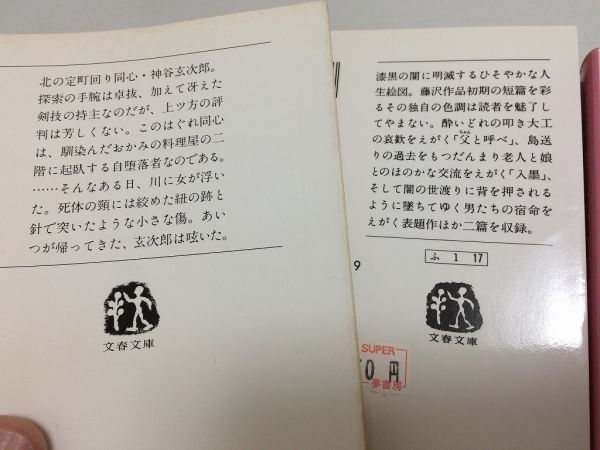 北の定町回り同心・神谷玄次郎。
探索の手腕は卓抜、加えて冴えた
剣技の持主なのだが、上ツ方の評
判は芳しくない。このはぐれ同心
は、馴染んだおかみの料理屋の二
階に起臥する自堕落者なのである。
……そんなある日、川に女が浮い
た。死体の頸には絞めた紐の跡と
針で突いたような小さな傷。あい
つが帰ってきた、玄次郎は呟いた。
文春文庫
漆黒の闇に明滅するひそやかな人
生絵図。藤沢作品初期の短篇を彩
るその独自の色調は読者を魅了し
てやまない。酔いどれの叩き大工
の哀歓をえがく「父と呼べ」、島送
りの過去をもつだんまり老人と娘
とのほのかな交流をえがく「入墨」、
そして闇の世渡りに背を押される
ように墜ちてゆく男たちの宿命を
えがく表題作ほか二篇を収録。
9
ふ 1 17
文春文庫
SUPER
0円
夢書房